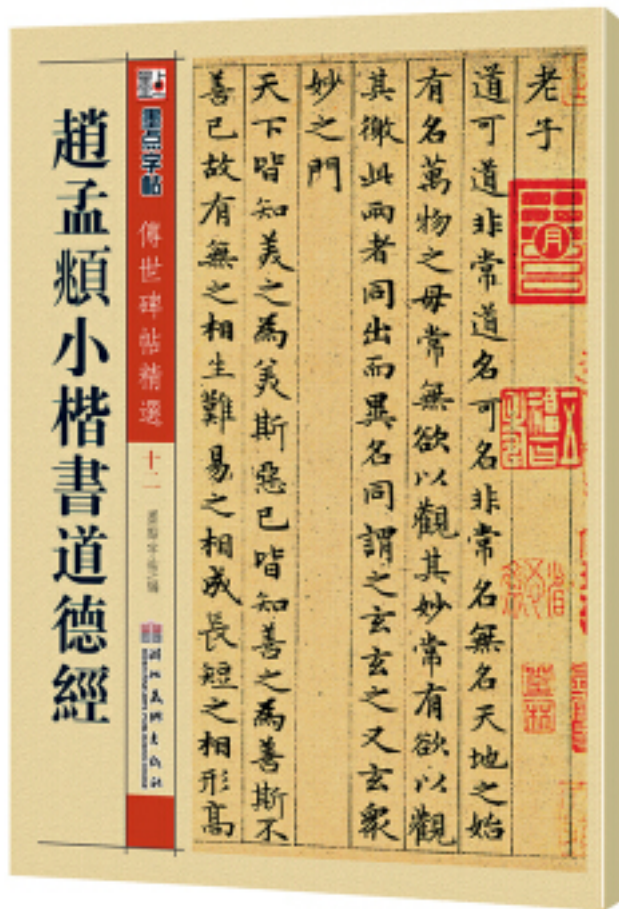 趙孟頫小楷書道德經
墨点字帖
傳世碑帖精選
十二
湖北美術出版社
老子
道可道非常道名可名非常名無名天地之始
有名萬物之母常無欲以觀其妙常有欲以觀
其徼此兩者同出而異名同謂之玄玄之又玄衆
妙之門
天下皆知美之為美斯惡已皆知善之為善斯不
善已故有無之相生難易之相成長短之相形高